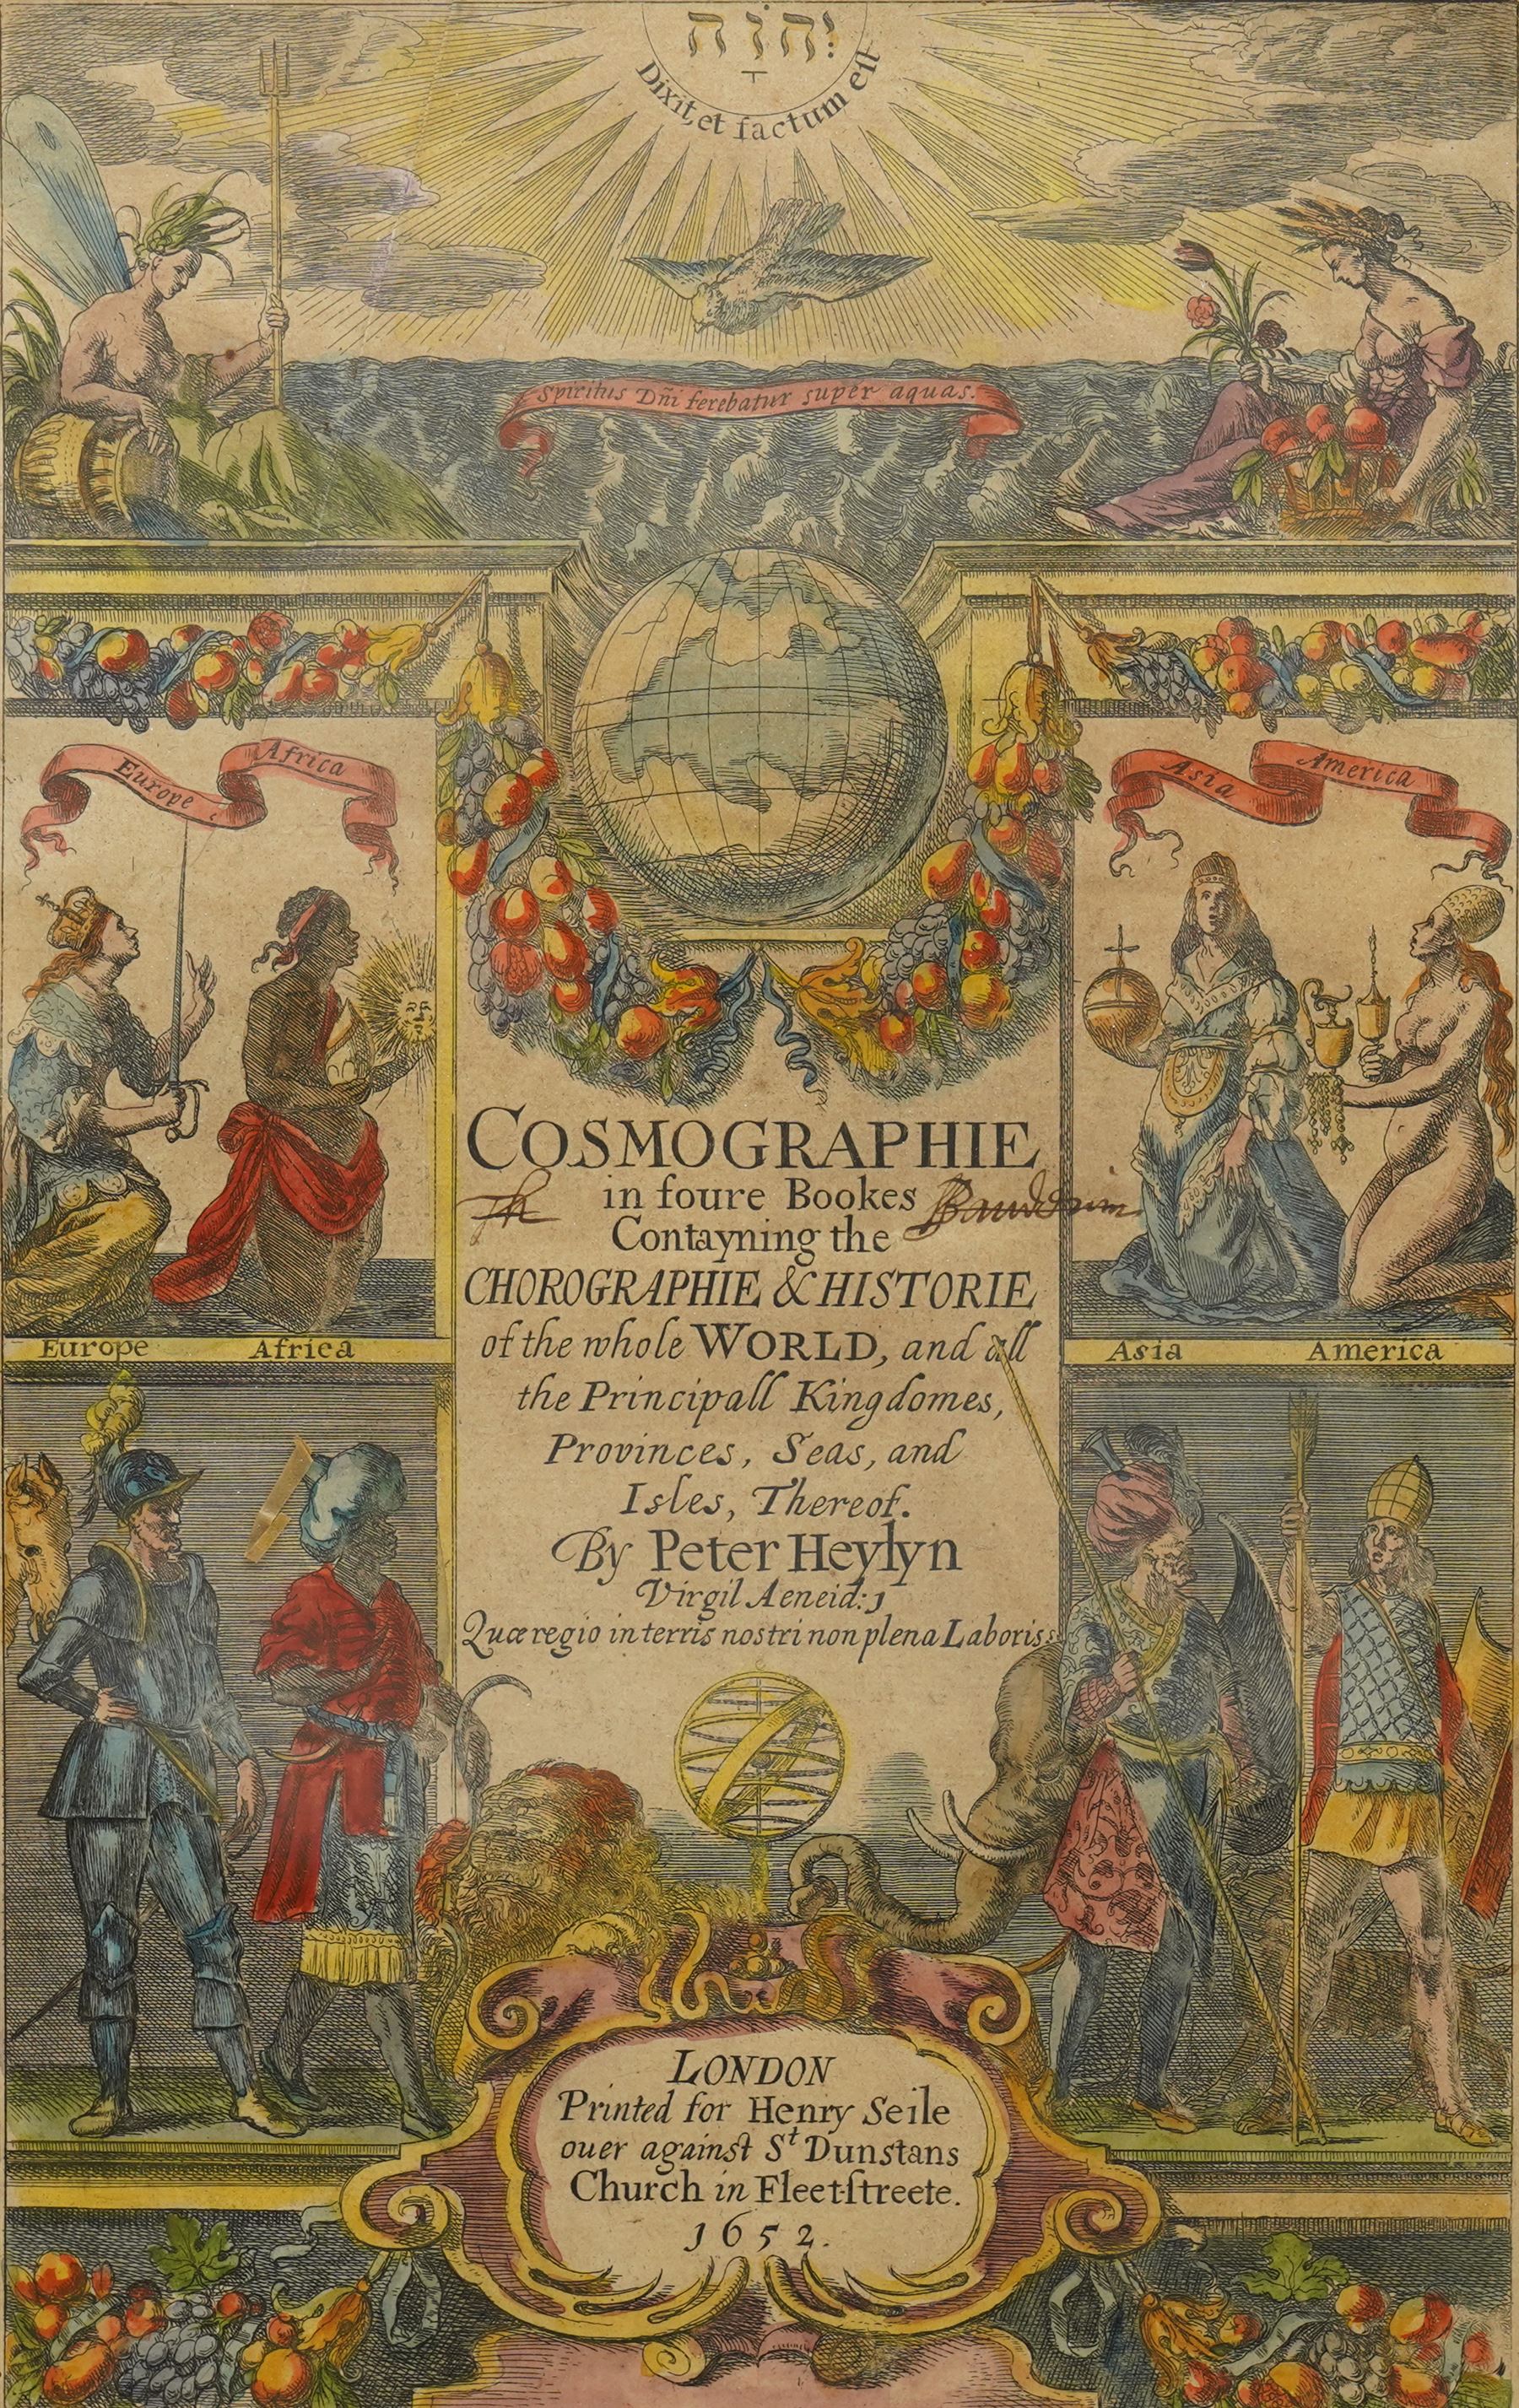 יהוה
Dixit, et factum est
Spiritus Dñi ferebatur super aquas.
Europe Africa
Asia America
COSMOGRAPHIE
in foure Bookes
Contayning the
CHOROGRAPHIE & HISTORIE
of the whole WORLD, and all
the Principall Kingdomes,
Provinces, Seas, and
Isles, Thereof.
By Peter Heylyn
Virgil Aeneid: 1
Quæ regio in terris nostri non plena Laboris:
Europe Africa
Asia America
LONDON
Printed for Henry Seile
ouer against St Dunstans
Church in Fleet-streete.
1652.